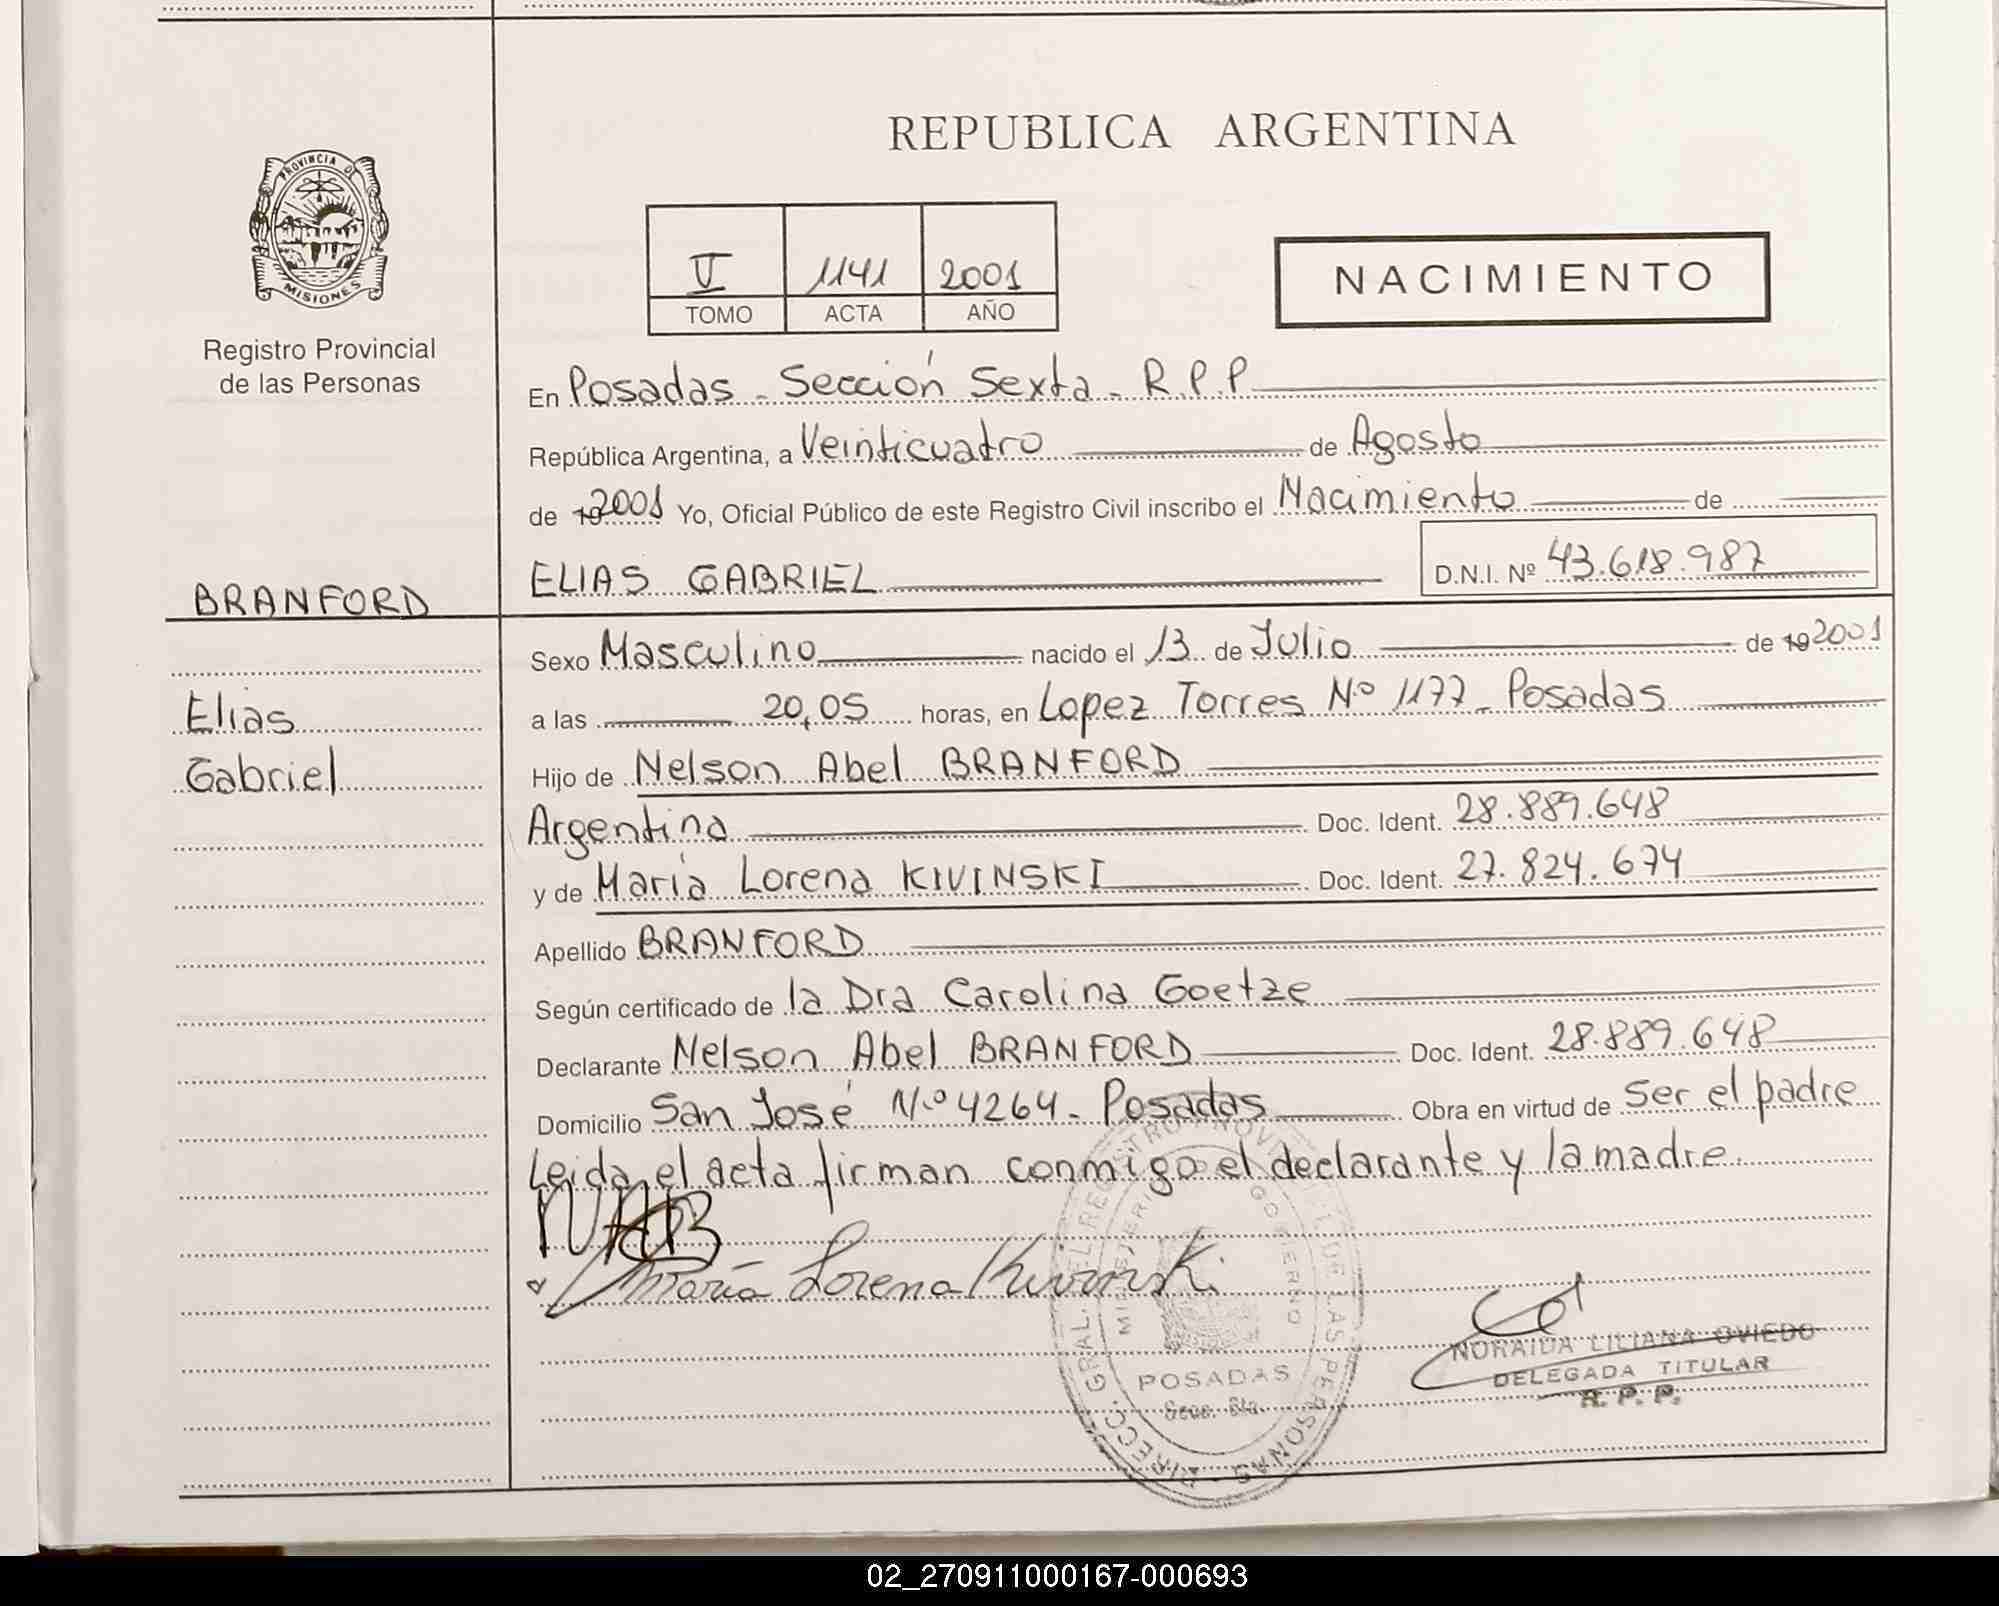 REPUBLICA ARGENTINA
PROVINCIA DE
MISIONES
Registro Provincial
de las Personas
V 1141 2001
TOMO ACTA AÑO
NACIMIENTO
En Posadas - Sección Sexta - R.P.P.
República Argentina, a Veinticuatro de Agosto
de 19 2001 Yo, Oficial Público de este Registro Civil inscribo el Nacimiento de
ELIAS GABRIEL D.N.I. Nº 43.618.987
BRANFORD
Elias
Gabriel
Sexo Masculino nacido el 13 de Julio de 19 2001
a las 20,05 horas, en Lopez Torres Nº 1177 - Posadas
Hijo de Nelson Abel BRANFORD
Argentina Doc. Ident. 28.889.648
y de María Lorena KIVINSKI Doc. Ident. 27.824.674
Apellido BRANFORD
Según certificado de la Dra Carolina Goetze
Declarante Nelson Abel BRANFORD Doc. Ident. 28.889.648
Domicilio San José Nº 4264 - Posadas Obra en virtud de Ser el padre
Leida el acta firman conmigo el declarante y la madre.
NAB
María Lorena Kivinski
DIRECC. GRAL. DEL REGISTRO PROVINCIAL DE LAS PERSONAS
MINISTERIO GOBIERNO
POSADAS
Secc. 6ta.
NORAIDA LILIANA OVIEDO
DELEGADA TITULAR
R.P.P.
02_270911000167-000693